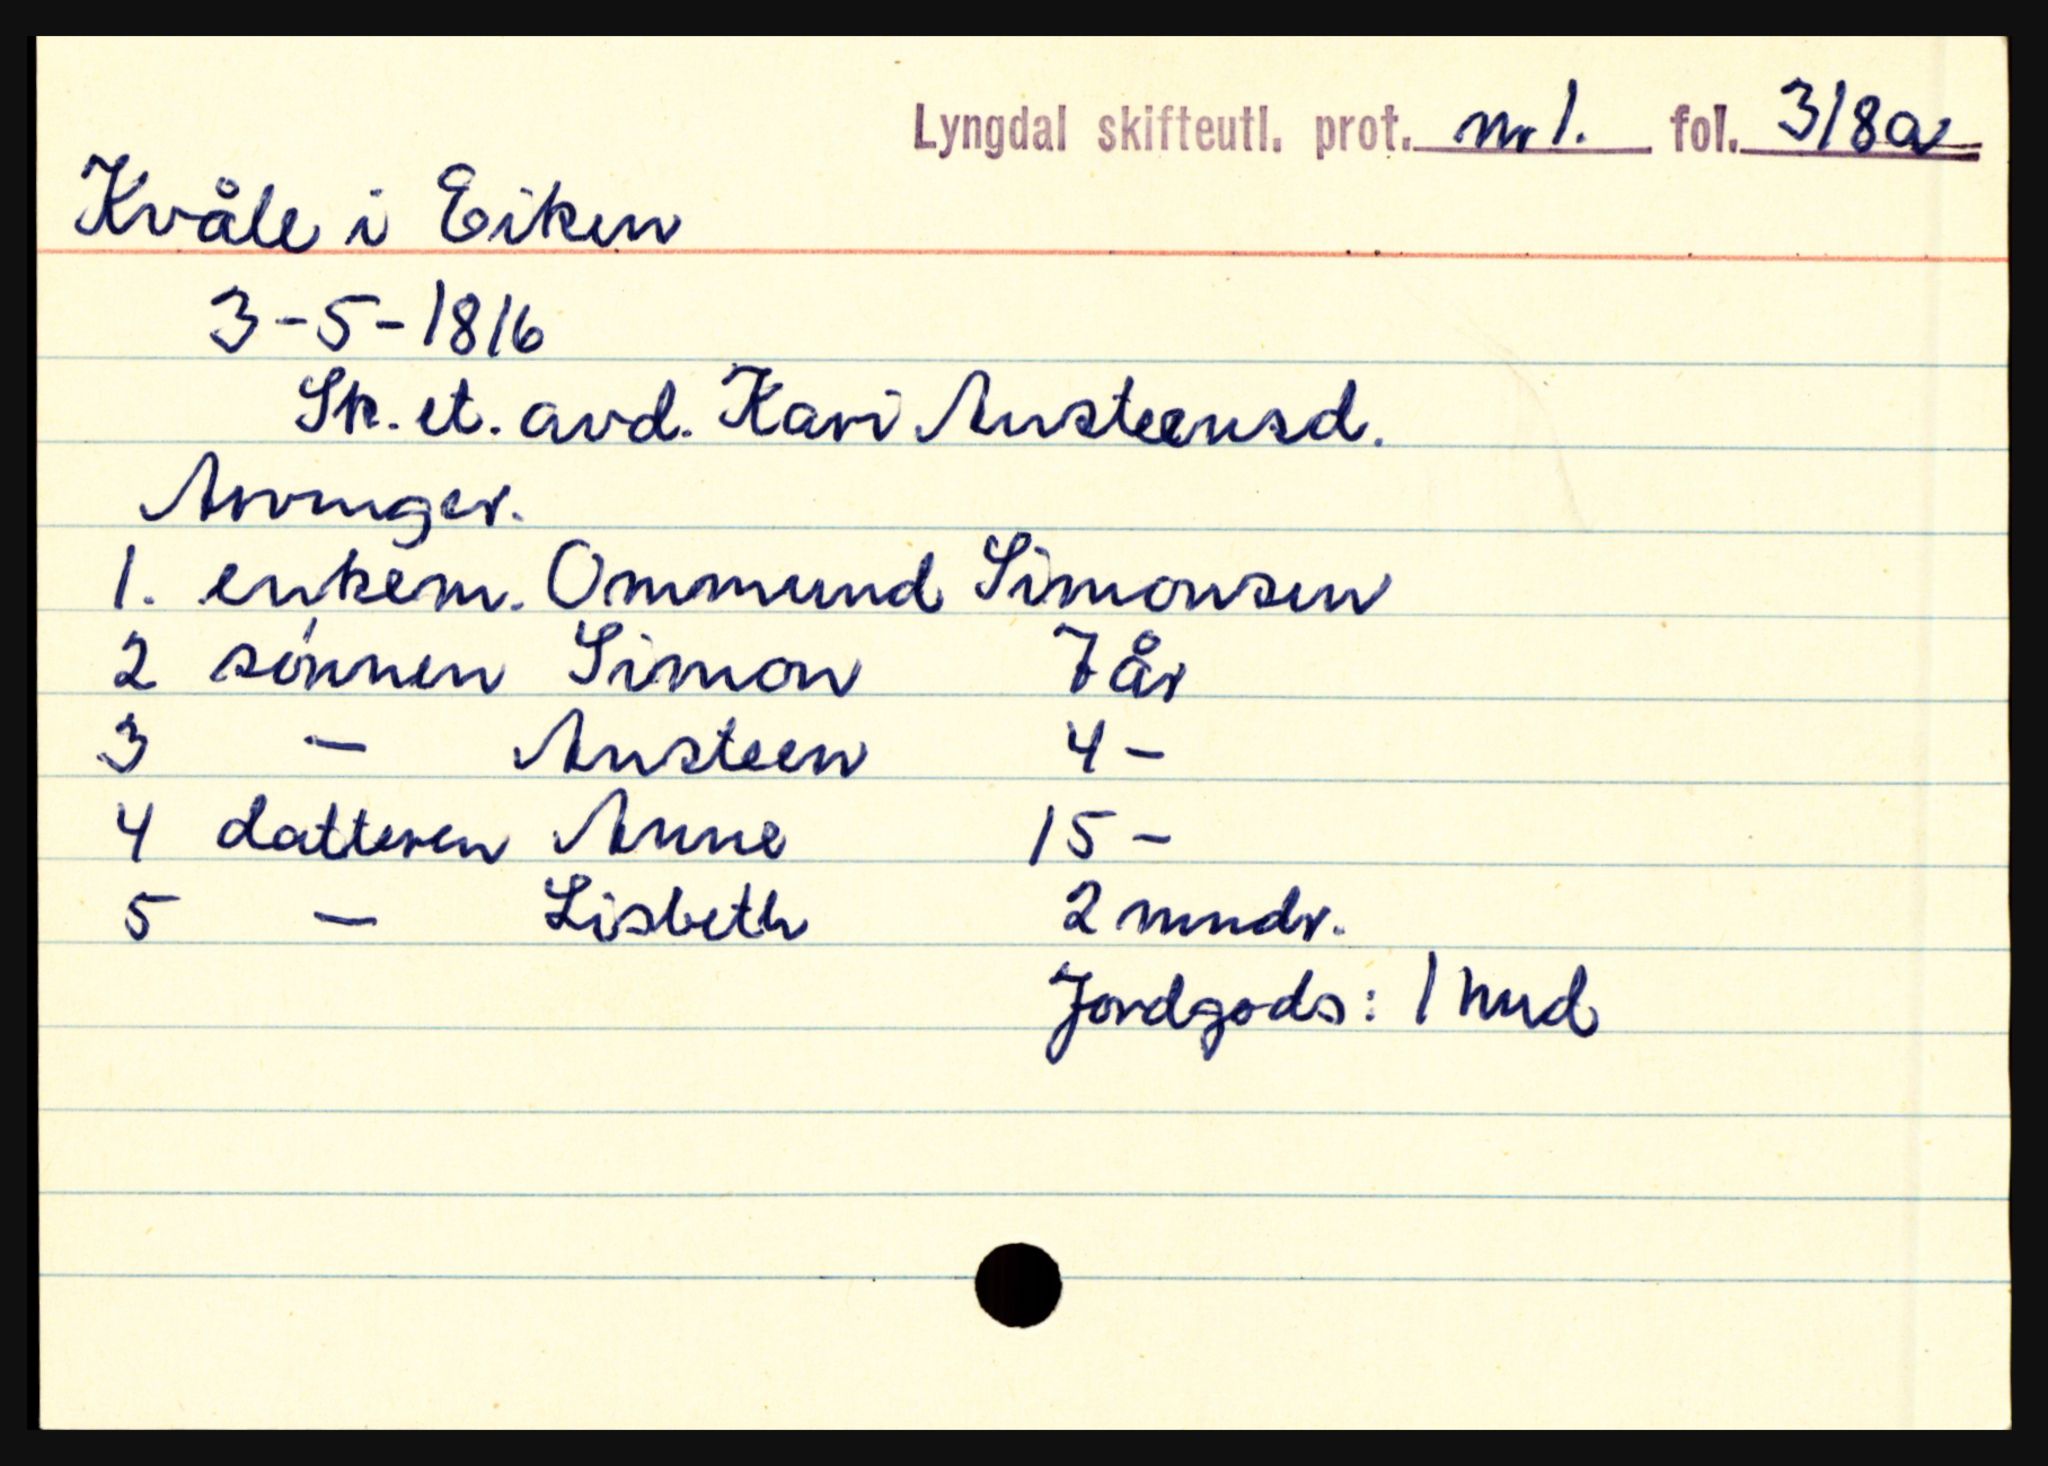 Lyngdal skifteutl. prot. nr 1. fol. 318a
Kvåle i Eiken
3-5-1816
Sk. et. avd. Kari Austeensd.
Arvinger.
1. enkem. Ommund Simonsen
2 sønnen Simon 7 år
3 - Austeen 4 -
4 datteren Anne 15 -
5 - Lisbeth 2 mndr.
Jordgods: 1 hud